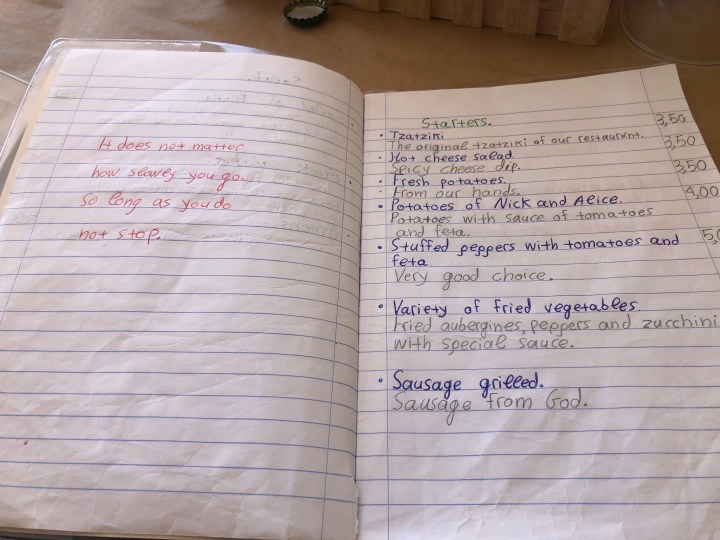 It does not matter
how slowey you go
so long as you do
not stop.
Starters.
• Tzatziki 3,50
The original tzatziki of our restaurant.
• Hot cheese salad 3,50
Spicy cheese dip.
• Fresh potatoes. 3,50
From our hands.
• Potatoes of Nick and Alice. 4,00
Potatoes with sauce of tomatoes
and feta.
• Stuffed peppers with tomatoes and
feta
Very good choice.
• Variety of fried vegetables.
Fried aubergines, peppers and zucchini
with special sauce.
• Sausage grilled.
Sausage from God.